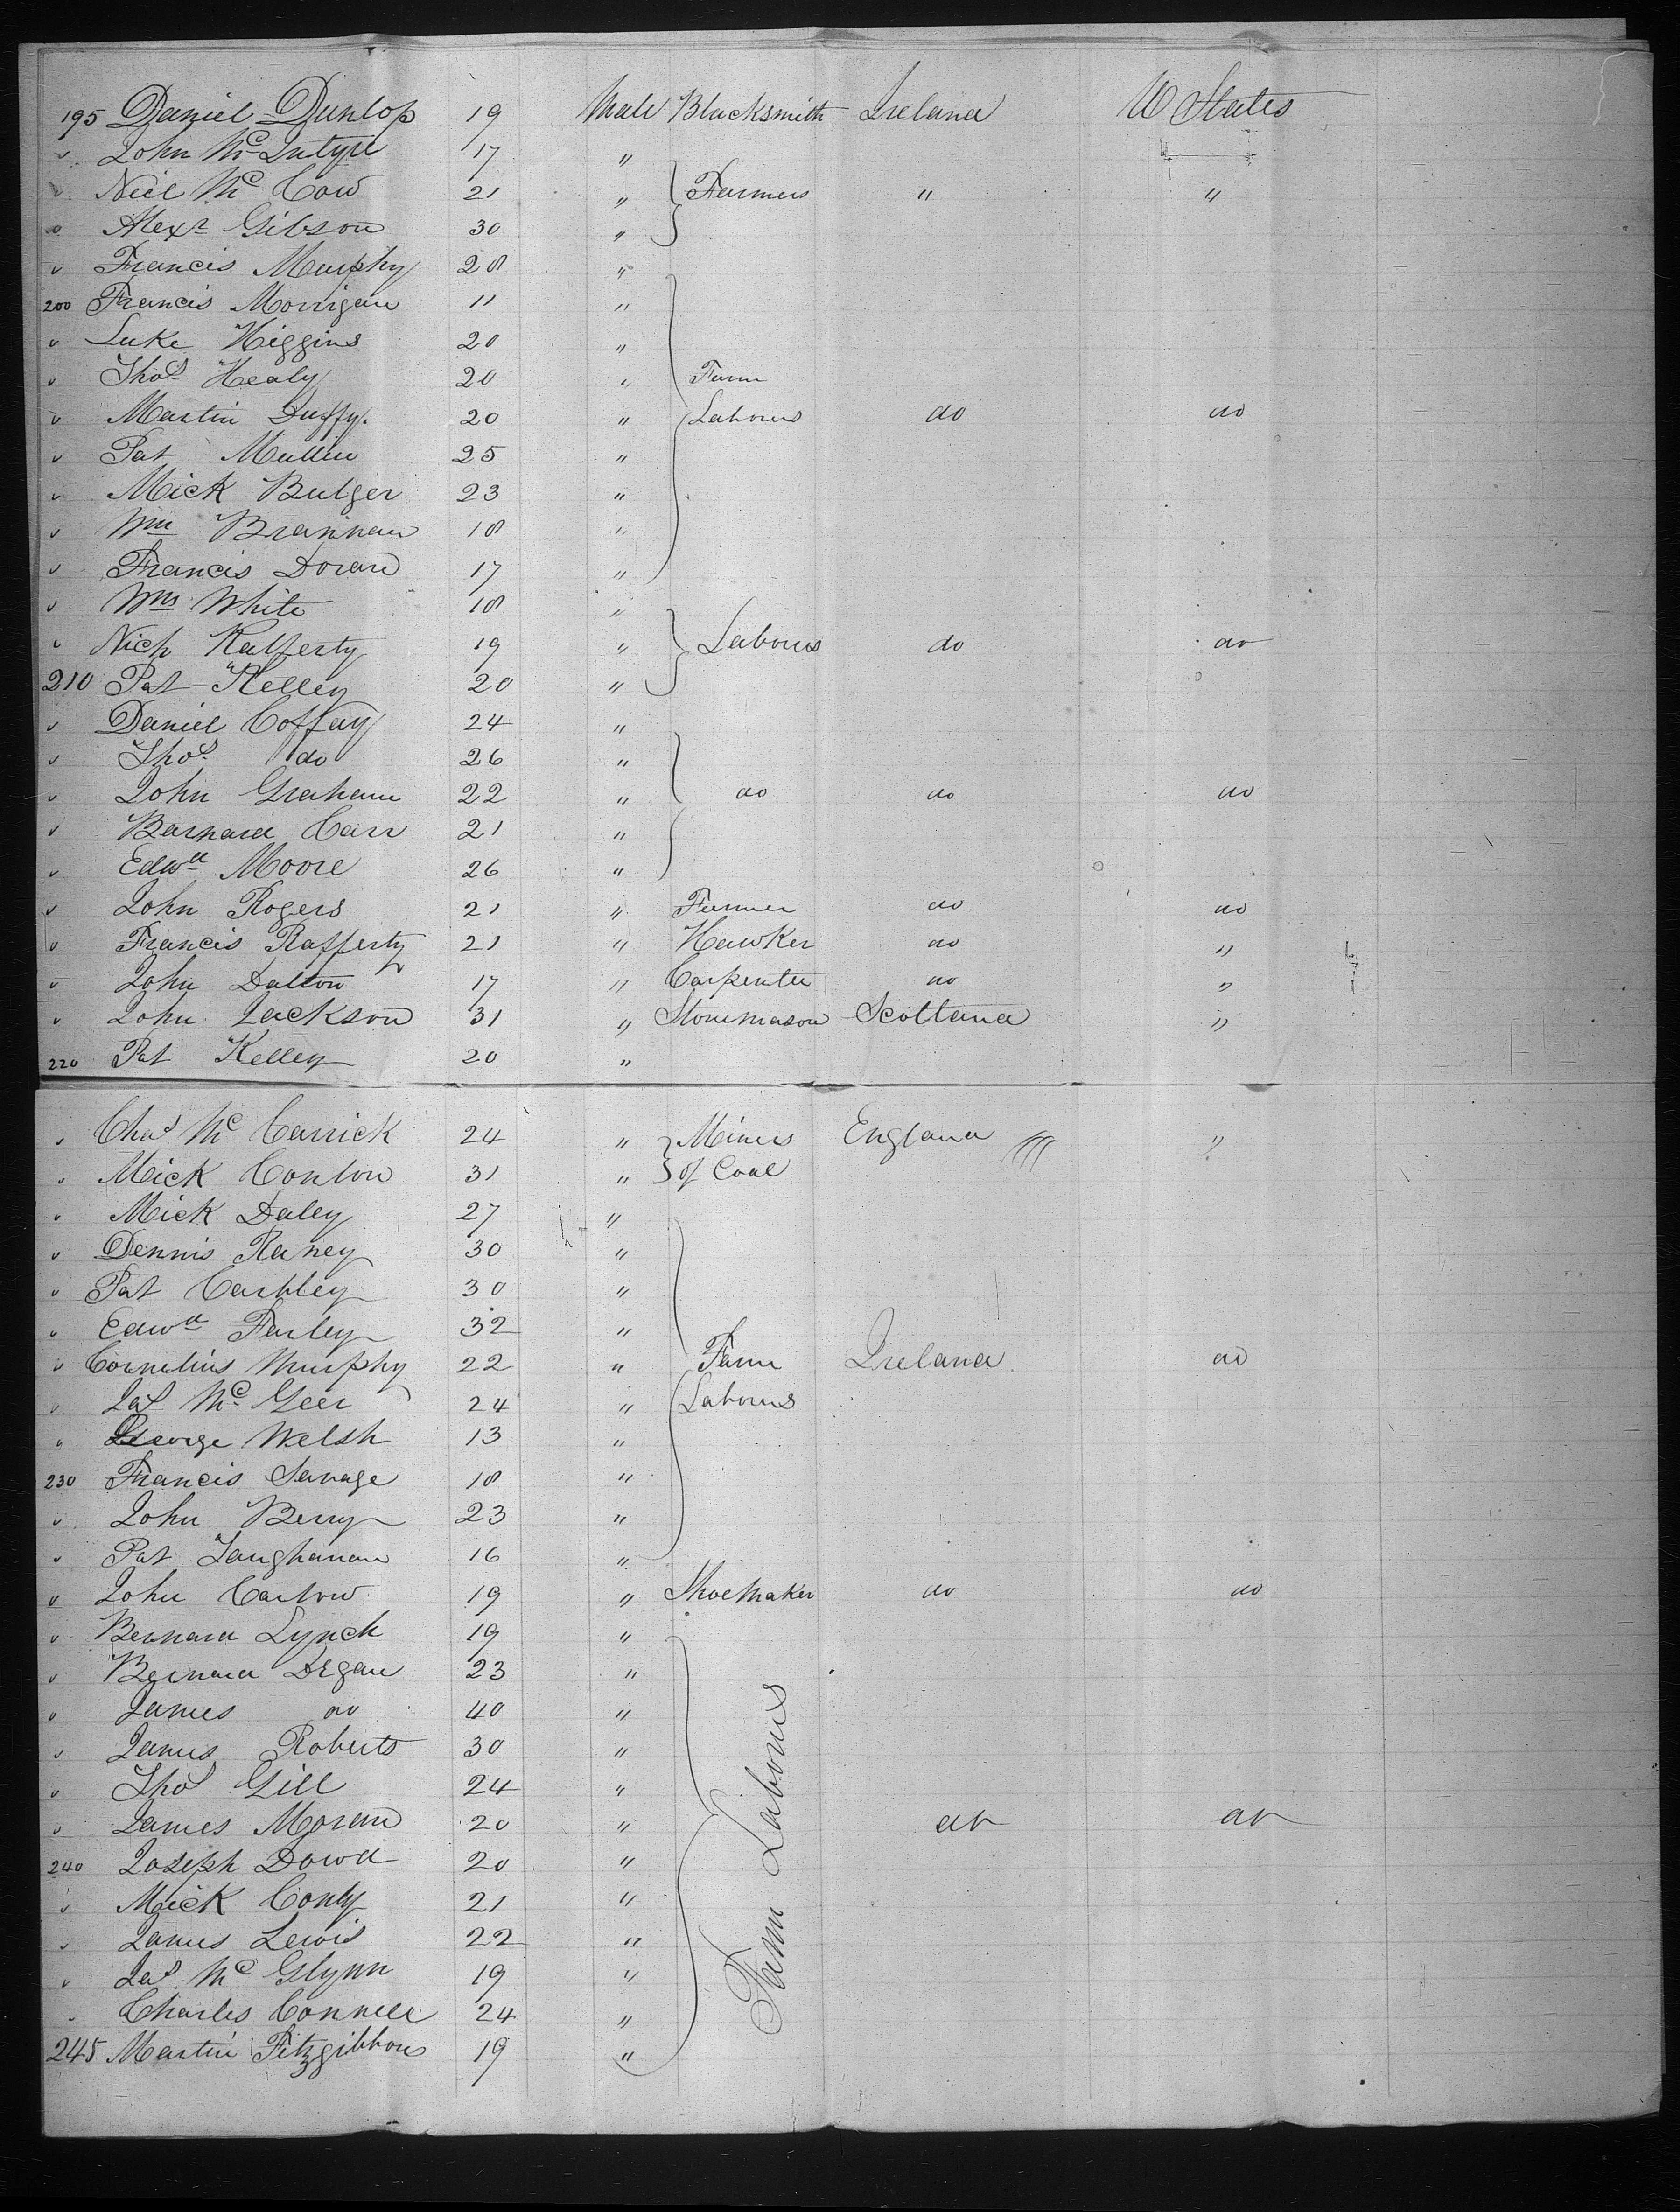 195 Daniel Dunlop 19 Male Blacksmith Ireland U States
" John McIntyre 17 "
" Neil McCow 21 " Farmers " "
" Alexr Gibson 30 "
" Francis Murphy 28 "
200 Francis Morrigan 11 "
" Luke Higgins 20 "
" Thos Healy 20 " Farm
" Martin Duffy. 20 " Laborers do do
" Pat Mullin 25 "
" Mick Bulger 23 "
" Wm Brannan 18 "
" Francis Doran 17 "
" Wm White 18 "
" Nich Rafferty 19 " Laborers do do
210 Pat Kelley 20 "
" Daniel Coffay 24 "
" Thos do 26 "
" John Graham 22 " do do do
" Barnard Carr 21 "
" Edwd Moore 26 "
" John Rogers 21 " Farmer do do
" Francis Rafferty 21 " Hawker do "
" John Dalton 17 " Carpenter do "
" John Jackson 31 " Stonemason Scotland "
220 Pat Kelley 20 "
" Chas McCarrick 24 " Miners England "
" Mick Conlon 31 " of Coal
" Mick Daley 27 "
" Dennis Raney 30 "
" Pat 30 "
" Edwd Farley 32 "
" Cornelius Murphy 22 " Farm Ireland do
" Jas McGeer 24 " Laborers
" George Welsh 13 "
230 Francis Savage 18 "
" John Berry 23 "
" Pat 16 "
" John Carlow 19 " Shoemaker do do
" Bernard Lynch 19 "
" Bernard Degan 23 "
" James do 40 "
" James Roberts 30 "
" Thos Gill 24 "
" James Moran 20 " Farm Laborers do do
240 Joseph Dowd 20 "
" Mick Conly 21 "
" James Lewis 22 "
" Jas McGlynn 19 "
" Charles Connell 24 "
245 Martin Fitzgibbons 19 "